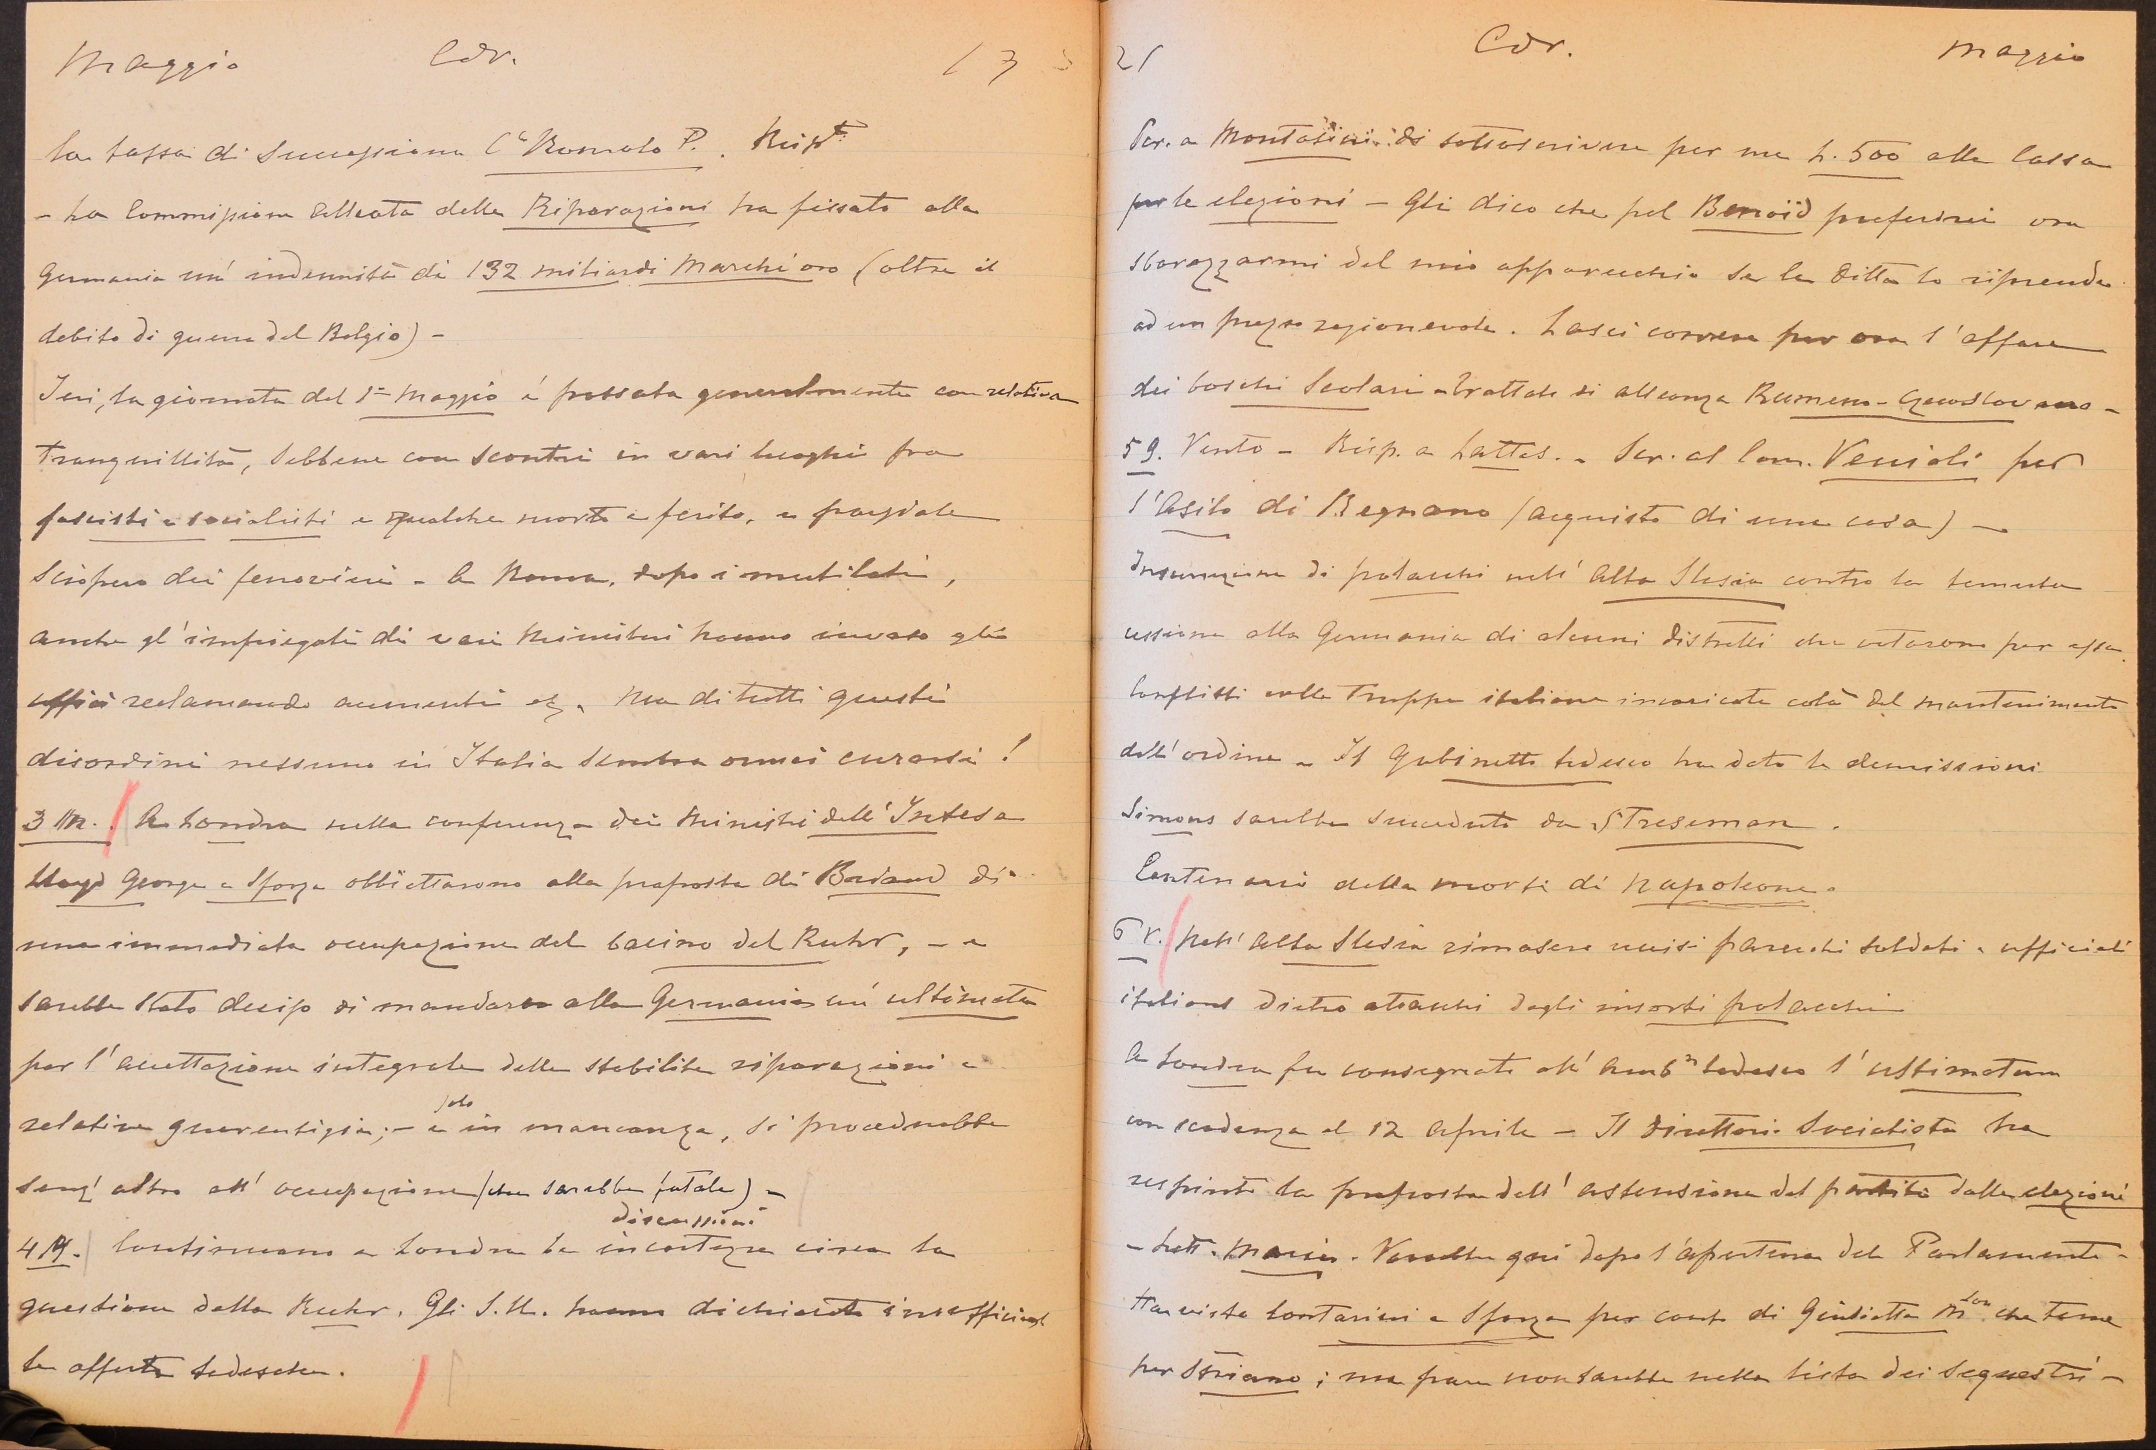 Maggio Cdr. 173
la tassa di successione Cte Romolo P. . Risp.
- La Commissione alleata delle Riparazioni ha fissato alla
Germania un' indennità di 132 miliardi Marchi oro (oltre il
debito di guerra del Belgio) -
Ieri, la giornata del 1º Maggio è passata generalmente con relativa
tranquillità, sebbene con scontri in vari luoghi fra
fascisti e socialisti e qualche morto e ferito, e parziale
sciopero dei ferrovieri - A Roma, dopo i mutilati,
anche gl'impiegati di vari Ministeri hanno invaso gli
uffici reclamando aumenti ez. Ma di tutti questi
disordini nessuno in Italia sembra ormai curarsi!
3 M. A Londra nella conferenza dei Ministri dell'Intesa
Lloyd George e Sforza obbiettarono alla proposta di Briand di
una immediata occupazione del bacino del Ruhr, - e
sarebbe stato deciso di mandare alla Germania un' ultimatum
per l'accettazione integrale delle stabilite riparazioni e
relative guarentigie; - e solo in mancanza, si procederebbe
senz'altro all' occupazione (che sarebbe fatale) -
4 M. Continuano a Londra le incertezze discussioni circa la
questione della Ruhr. Gli S.U. hanno dichiarate insufficienti
le offerte tedesche.
21 Cdr. Maggio
Scr. a Montasini di sottoscrivere per me L. 500 alla Cassa
per le elezioni - Gli dico che pel Benoid preferirei ora
sbarazzarmi del mio apparecchio se la Ditta lo riprende
ad un prezzo ragionevole. Lasci correre per ora l'affare
dei boschi Scolari - Trattato di alleanza Rumeno-Czecoslovacca -
5 g. Vento - Risp. a Lattes. - Scr. al Com. Venioli per
l'Asilo di Regnano (acquisto di una casa) -
Insurrezione di polacchi nell' Alta Slesia contro la temuta
cessione alla Germania di alcuni distretti che votarono per essa.
Conflitti colle truppe italiane incaricate colà del mantenimento
dell'ordine - Il Gabinetto tedesco ha dato le dimissioni
Simons sarebbe succeduto da Streseman.
Centenario della morte di Napoleone.
6 V. Nell' Alta Slesia rimasero uccisi parecchi soldati e ufficiali
italiani dietro attacchi degli insorti polacchi
A Londra fu consegnato all' Ambr tedesco l'ultimatum
con scadenza al 12 Aprile - Il Direttorio Socialista ha
respinto la proposta dell' astensione del partito dalle elezioni
- Lett. Maria. Verrebbe qui dopo l'apertura del Parlamento -
Ha visto Contarini e Sforza per conto di Giulietta M. che teme
per Striano; ma pare non sarebbe nella lista dei sequestri -